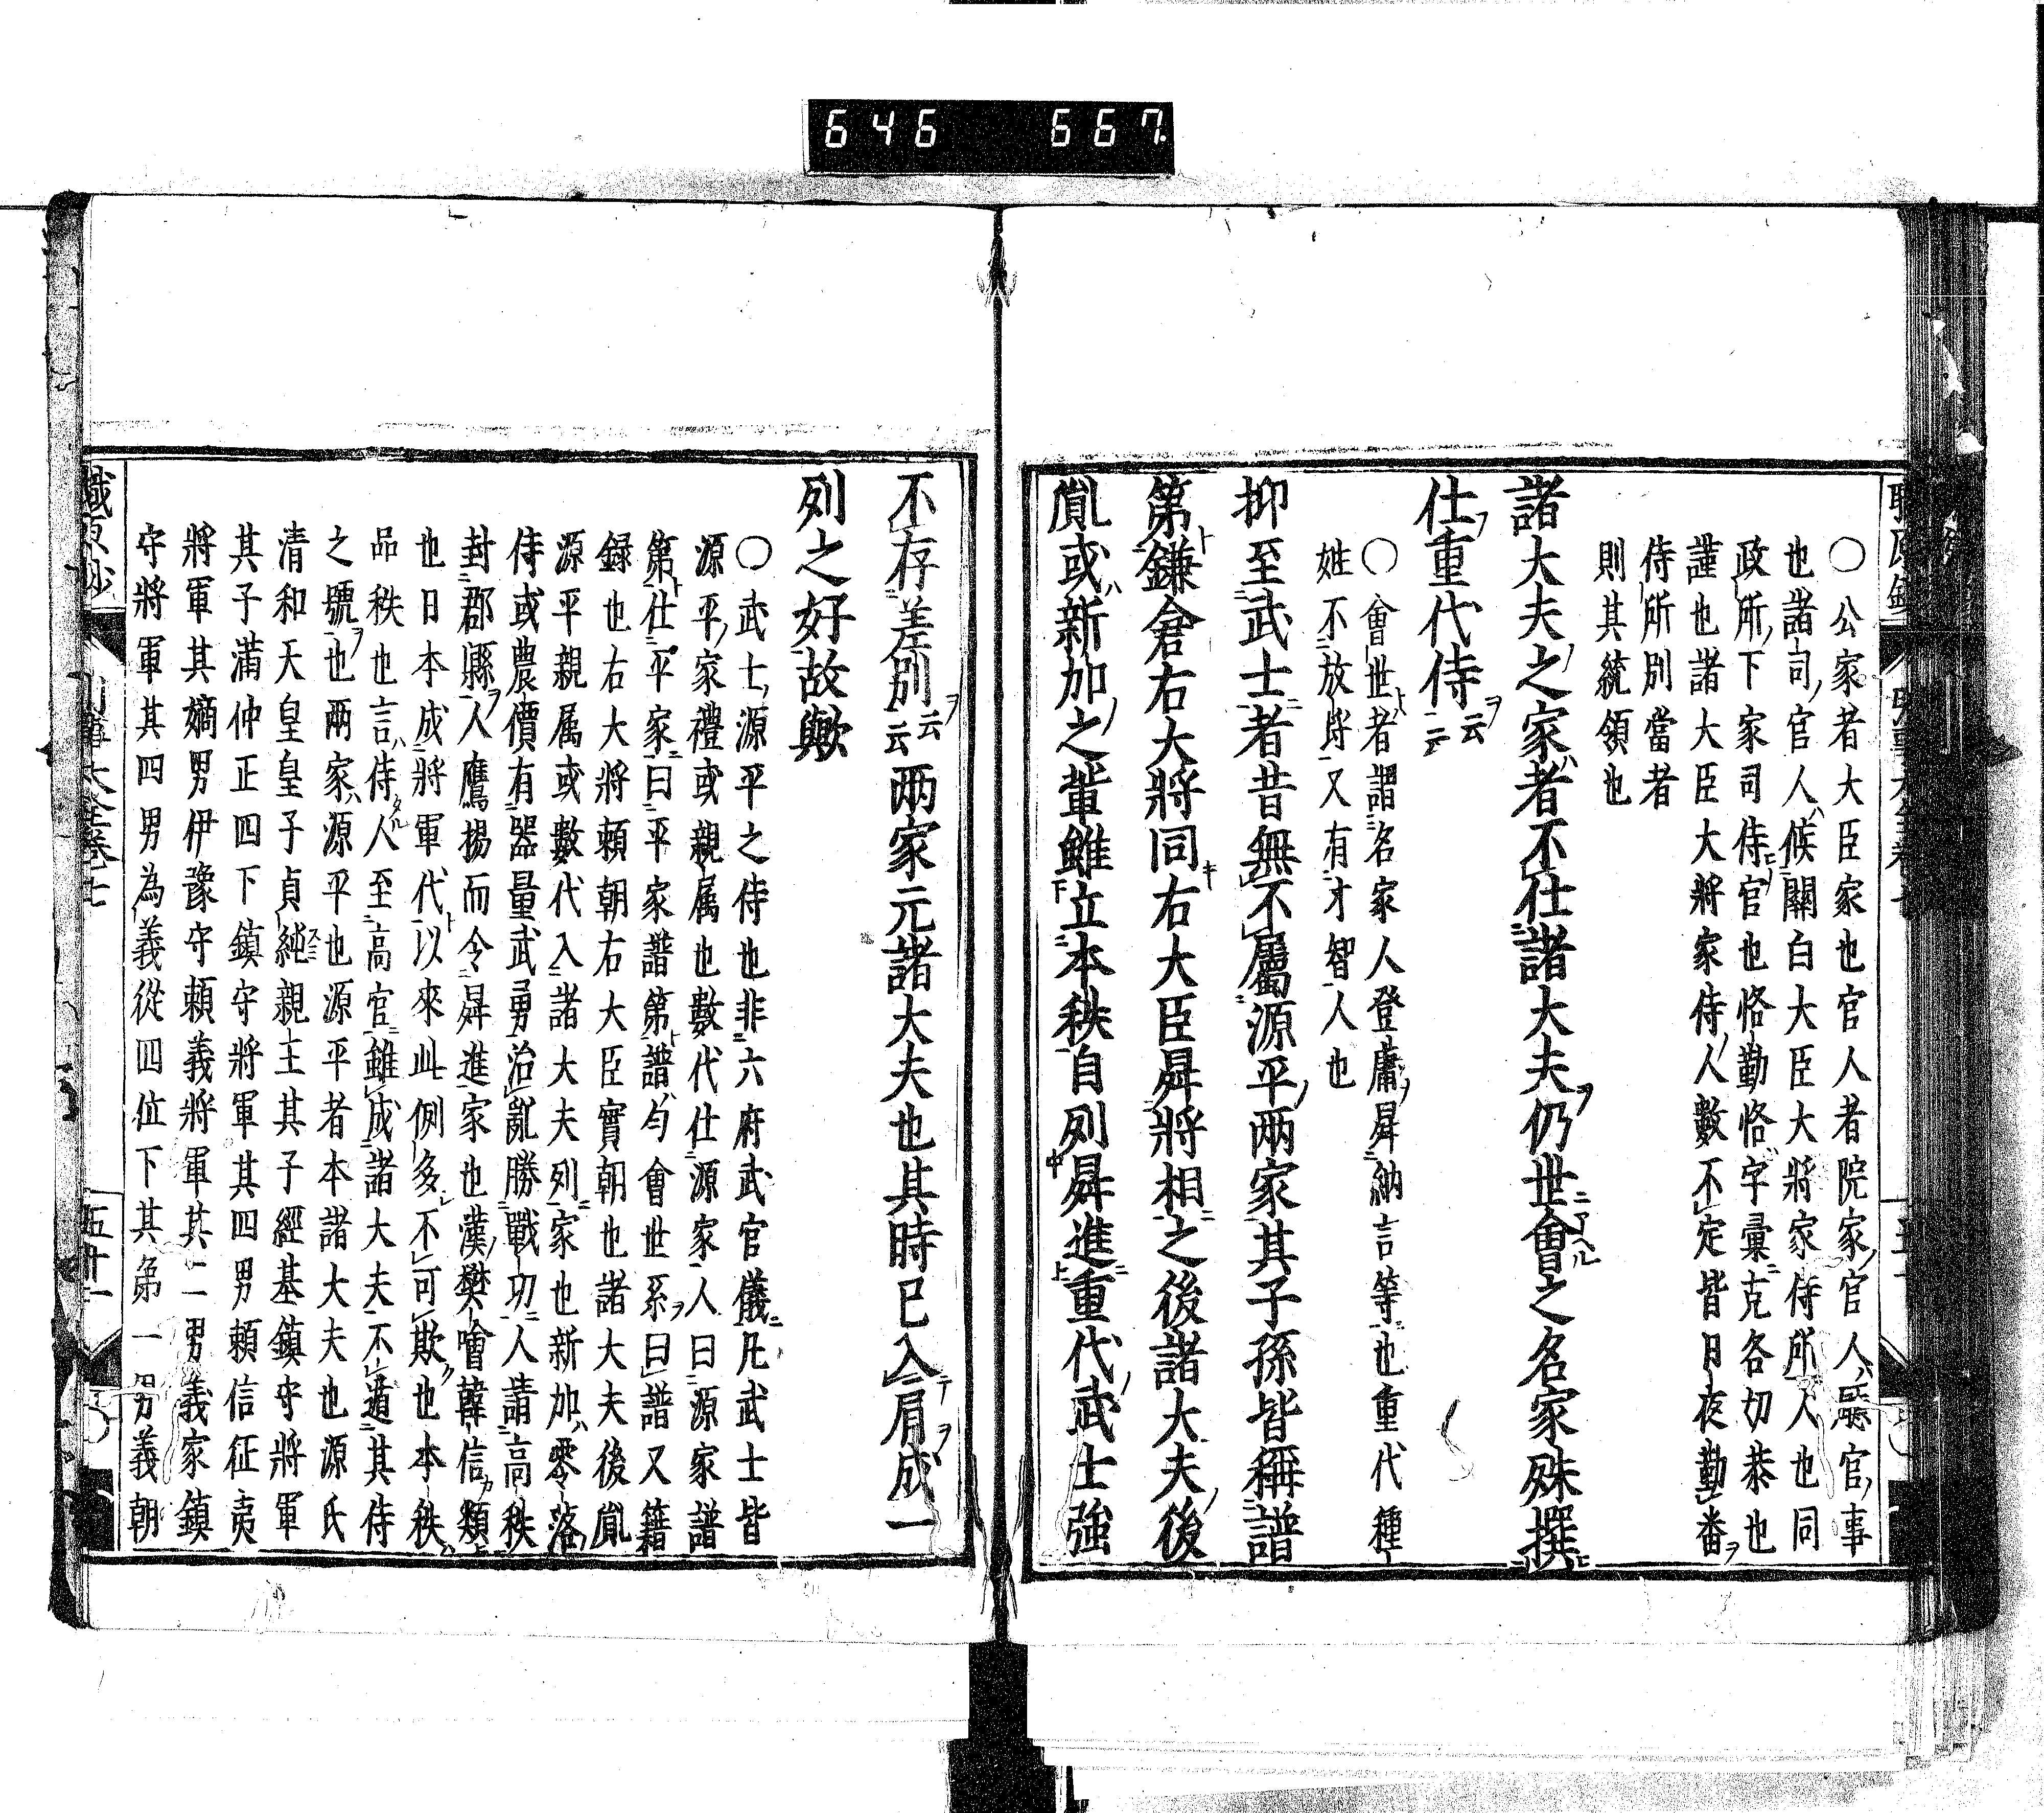 646 667
〇公家者大臣家也官人者院家官人縣官事
也諸司官人候關白大臣大將家侍所人也同
政所下家司侍官也恪勤恪字彙克各切恭也
謹也諸大臣大將家侍人數不定皆日夜勤番
侍所別當者
則其統領也
諸大夫之家者不仕諸大夫仍世會之名家殊撰
仕重代侍云云
〇會世者謂名家人登庸昇納言等也重代種
姓不放埓又有才智人也
抑至武士者昔無不屬源平兩家其子孫皆稱譜
第鎌倉右大將同右大臣昇將相之後諸大夫後
胤或新加之輩雖立本秩自列昇進重代武士強
不存差別云云兩家元諸大夫也其時已入肩成一
列之好故歟
〇武士源平之侍也非六府武官儀凡武士皆
源平家禮或親属也數代仕源家人曰源家譜
第仕平家曰平家譜第譜勻會世系曰譜又籍
録也右大將頼朝右大臣實朝也諸大夫後胤
源平親属或數代入諸大夫列家也新加零落
侍或農價有器量武勇治亂勝戰功人請高秩
封郡縣人鷹揚而令昇進家也漢樊噲韓信類
也日本成將軍代以來此例多不可欺也本秩
品秩也言侍人至高官雖成諸大夫不遁其侍
之號也兩家源平也源平者本諸大夫也源氏
清和天皇皇子貞純親王其子經基鎮守將軍
其子滿仲正四下鎮守將軍其四男頼信征夷
將軍其嫡男伊豫守頼義將軍其二男義家鎮
守將軍其四男為義從四位下其第一男義朝
職原鈔
大全卷七
五十一